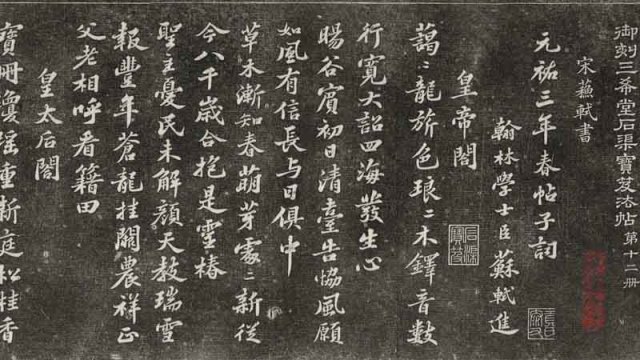 御刻三希堂石渠寶笈法帖 第十二冊
宋蘇軾書
元祐三年春帖子詞
翰林學士臣蘇軾進
皇帝閤
石渠寶笈
藹〻龍旂色琅〻木鐸音數
行寬大詔四海發生心
暘谷賓初日清臺告協風願
如風有信長与日俱中
草木漸知春萌芽處〻新從
今八千歲合抱是靈椿
聖主憂民未解顏天教瑞雪
報豐年蒼龍挂闕農祥正
父老相呼看籍田
皇太后閤
寶冊瓊瑤重新庭松桂香